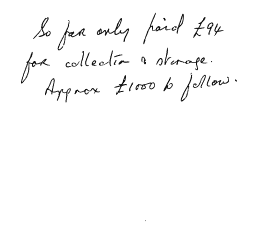 So far only paid £94
for collection & storage.
Approx £1000 to follow.